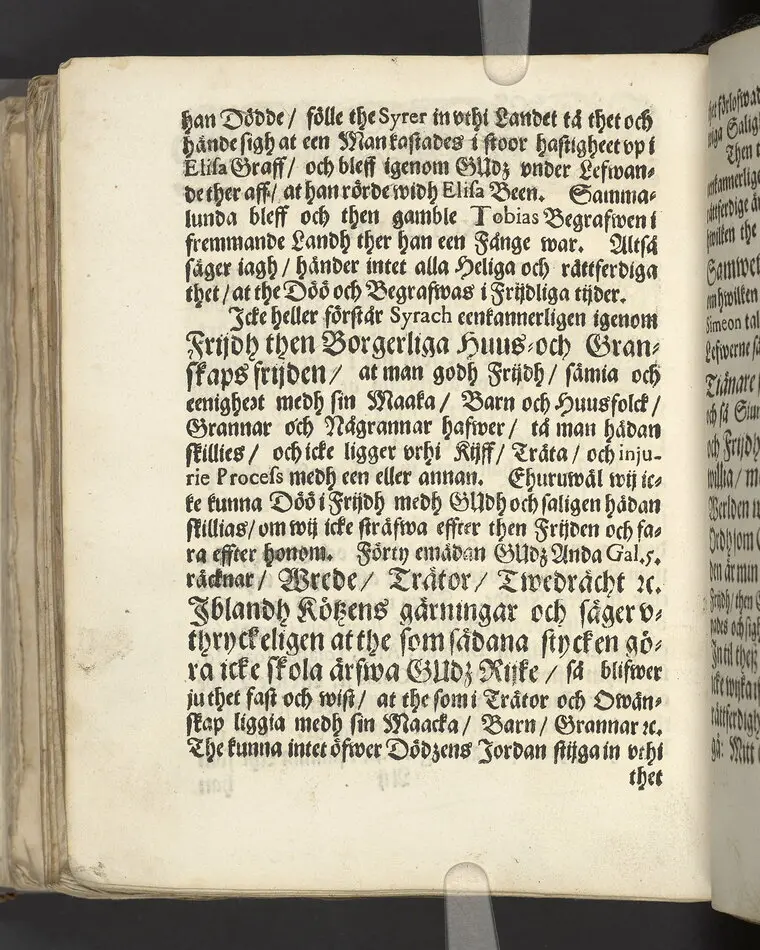 han Dödde / fölle the Syrer in vthi Landet tå thet och
hände sigh at een Man kastades i stoor hastigheet vp i
Elisa Graff / och bleff igenom GUdz vnder Lefwan-
de ther aff / at han rörde widh Elisa Been. Samma-
lunda bleff och then gamble Tobias Begrafwen i
fremmande Landh ther han een Fånge war. Altså
säger iagh / händer intet alla Heliga och rättferdiga
thet / at the Döö och Begrafwas i Frijdliga tijder.
Icke heller förstår Syrach eenkannerligen igenom
Frijdh then Borgerliga Huus-och Gran-
skaps frijden / at man godh Frijdh / sämia och
eenigheet medh sin Maaka / Barn och Huusfolck /
Grannar och Någrannar hafwer / tå man hädan
skillies / och icke ligger vthi Kijff / Träta / och inju-
rie Process medh een eller annan. Ehuruwäl wij ic-
ke kunna Döö i Frijdh medh GUdh och saligen hädan
skillias / om wij icke sträfwa effter then Frijden och fa-
ra effter honom. Förty emädan GUdz Anda Gal. 5.
räcknar / Wrede / Trätor / Twedrächt ꝛc.
Iblandh Kötzens gärningar och säger v-
thryckeligen at the som sådana stycken gö-
ra icke skola ärfwa GUdz Rijke / så blifwer
ju thet fast och wist / at the som i Trätor och Owän-
skap liggia medh sin Maacka / Barn / Grannar ꝛc.
The kunna intet öfwer Dödzens Jordan stijga in vthi
thet
het förlofwad
Then t
hwilken the
Samwet
om hwilken
Simeon tal
Lefwerne så
Tiänare
och Frijdh
willia / m
Werlden
den är min
Frijdh / then
rättferdigh
gå: Mitt